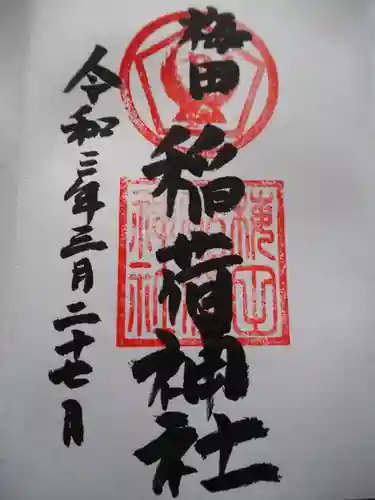 梅田
稲荷神社
令和二年三月二十七日
梅田
神社